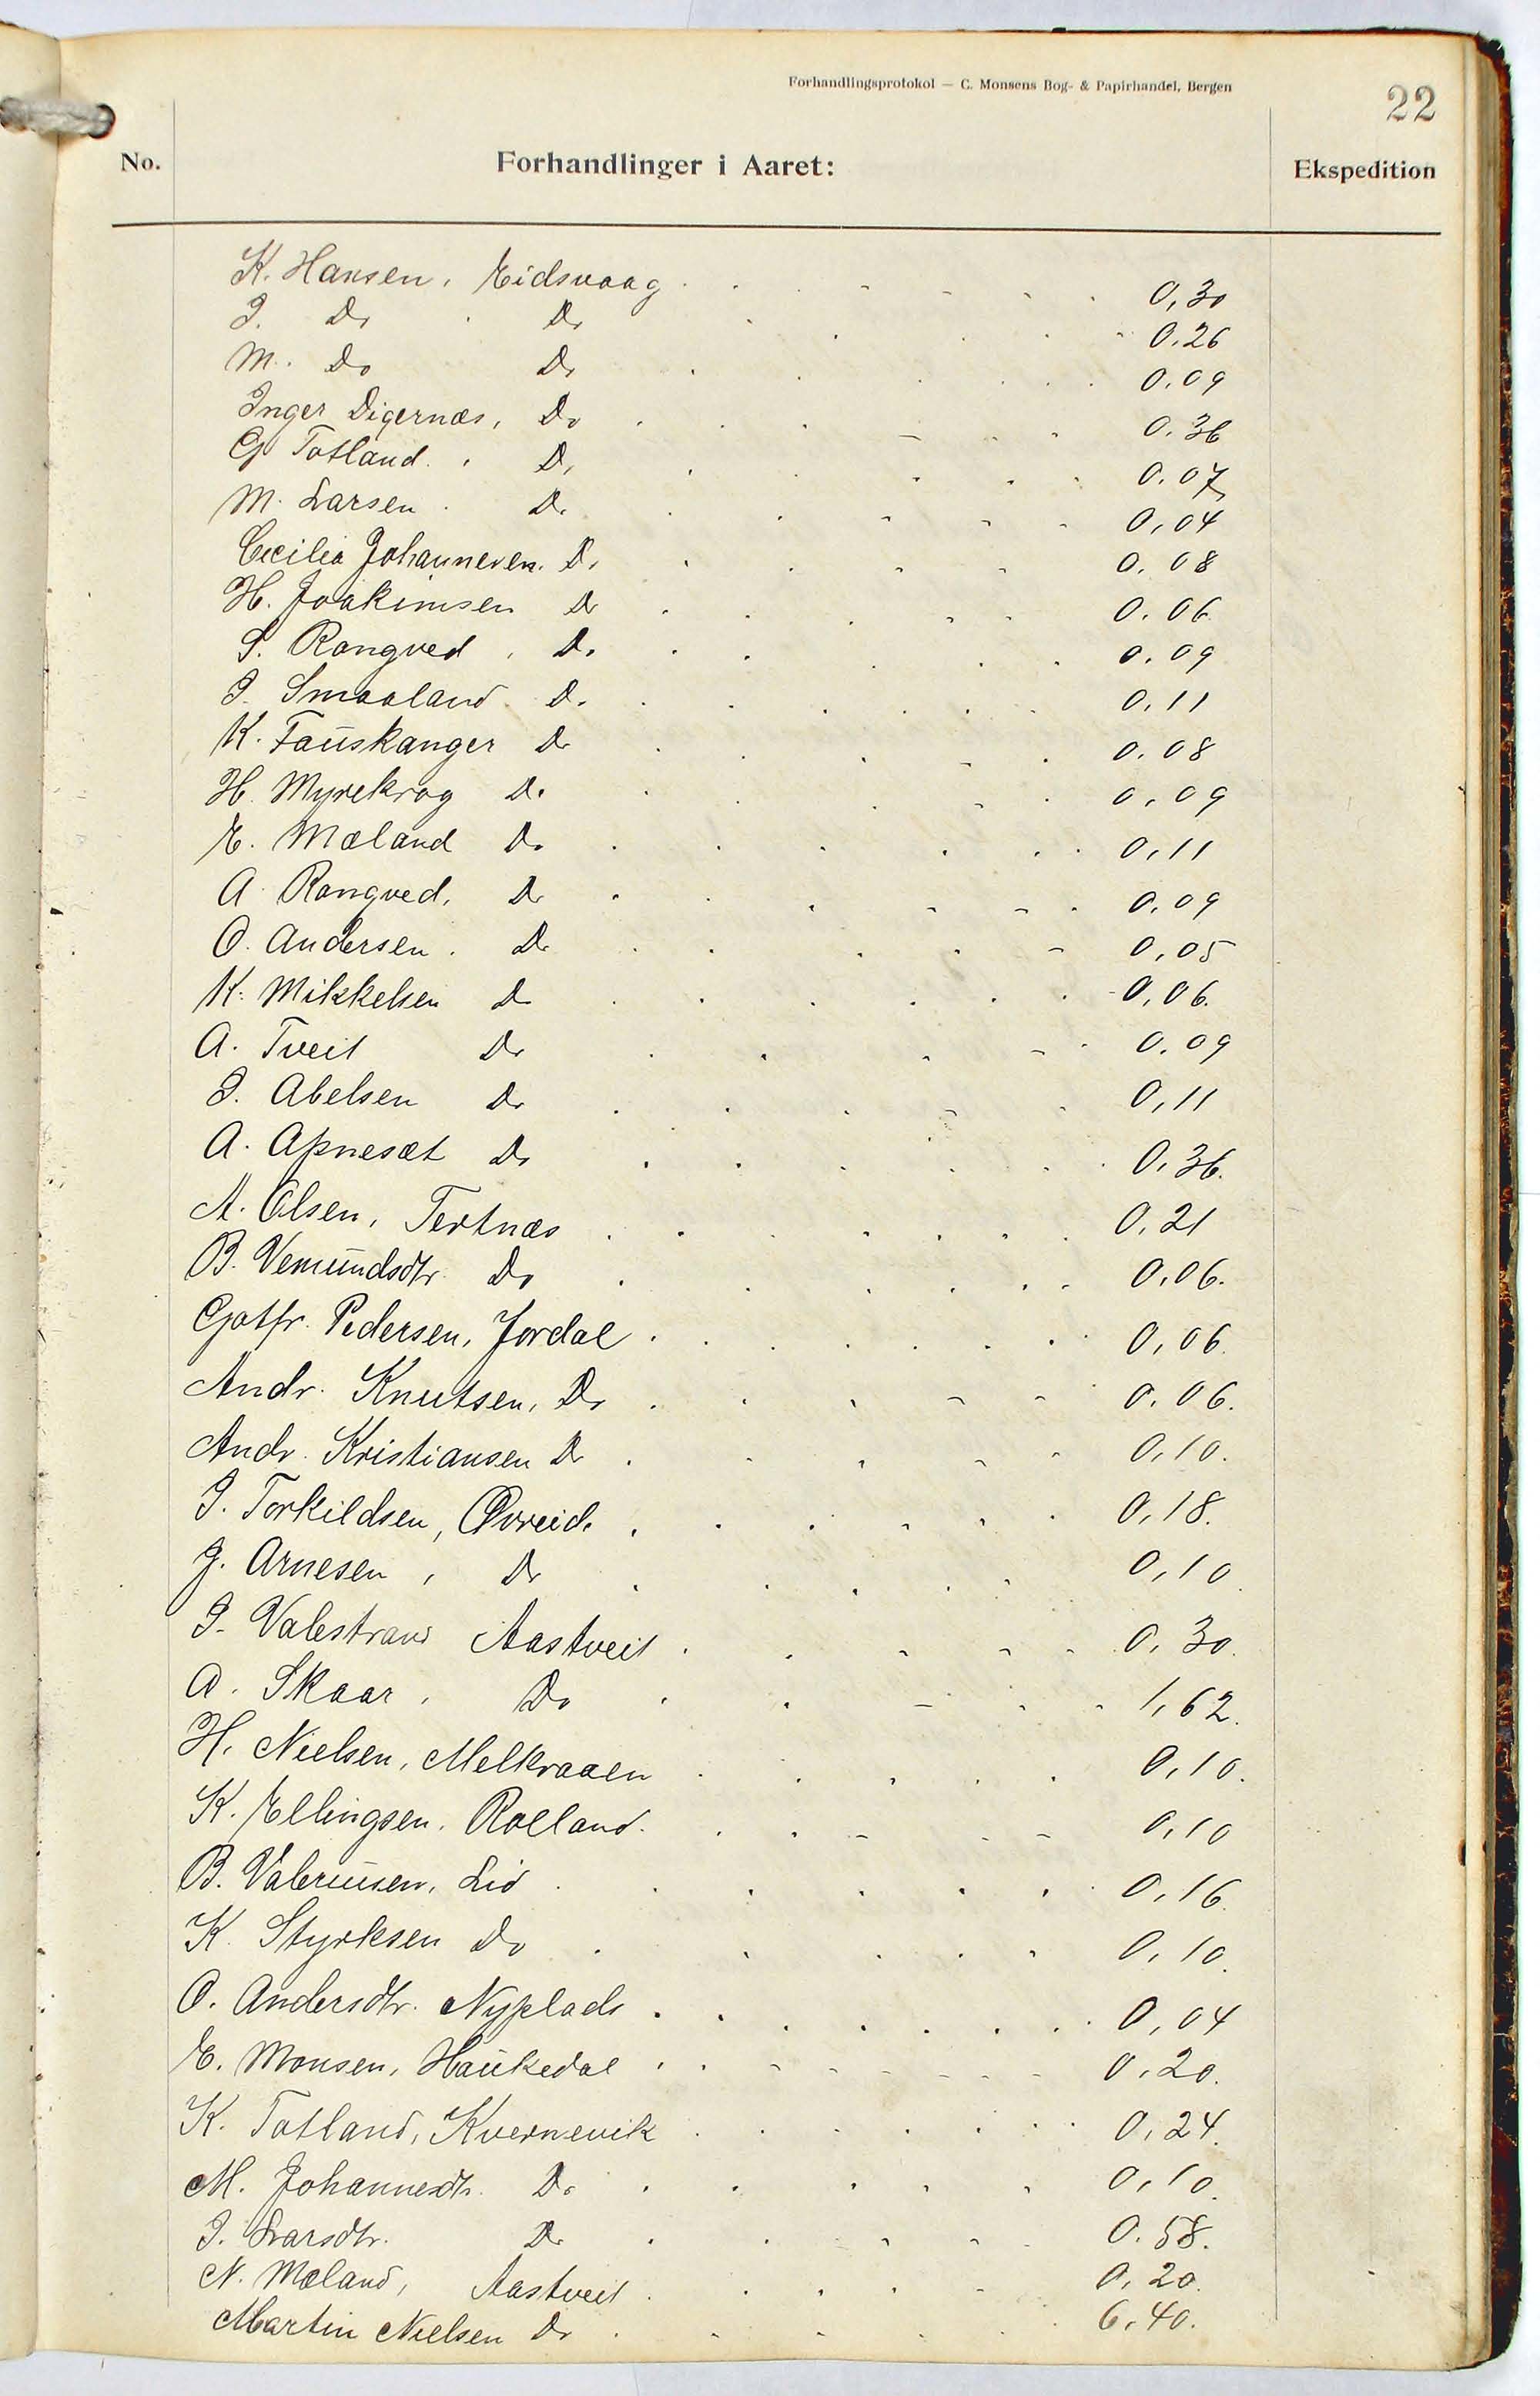 Forhandlingsprotokol — C. Monsens Bog- & Papirhandel, Bergen
22
No. Forhandlinger i Aaret: Ekspedition
K. Hansen, Eidsvaag . . . . . . 0,30
I. Do . Do . . . . . 0.26
M. Do Do . . . . . 0.09
Inger Digernæs, Do . . . . . 0.36
G Totland. , Do . . . . . 0.07
M. Larsen . Do . . . . . 0,04
Cecilia Johannesen. Do . . . . 0.08
H. Joakimsen Do . . . . . 0.06
S. Rongved , Do . . . . . 0.09
I. Smaaland . Do . . . . . 0,11
K. Fauskanger Do . . . . . 0.08
H. Myrekrog Do . . . . . 0,09
E. Mæland Do . . . . . 0,11
A. Rongved, Do . . . . . 0,09
O. Andersen . Do . . . . . 0,05
K. Mikkelsen Do . . . . . 0,06.
A. Tveit Do . . . . . 0.09
I. Abelsen Do . . . . . 0,11
A. Apnesæt Do . . . . . 0,36.
A. Olsen, Tertnæs . . . . . . 0,21
B. Vemundsdtr. Do . . . . . 0,06.
Gotfr. Pedersen, Jordal . . . . . . 0,06.
Andr. Knutsen, Do . . . . . 0.06.
Andr. Kristiansen Do . . . . . 0,10.
I. Torkildsen, Øvreide . . . . . . 0,18.
J. Arnesen , Do . . . . . 0,10.
I. Valestrand Aastveit . . . . . 0,30.
A. Skaar , Do . . . . . 1,62.
H. Nielsen, Melkraaen . . . . . 0,10.
K. Ellingsen. Rolland . . . . . 0,10
B. Valeriusen, Lid . . . . . . 0,16.
K. Styrksen Do . . . . . 0,10.
O. Andersdtr. Nyplads . . . . . . 0,04
E. Monsen, Haukedal . . . . . . 0,20.
K. Totland, Kvernevik . . . . . 0,24.
M. Johannesdtr. Do . . . . . 0,10.
I. Larsdtr. Do . . . . . 0.58.
N. Mæland, Aastveit . . . . . 0,20.
Martin Nielsen Do . . . . . 6,40.